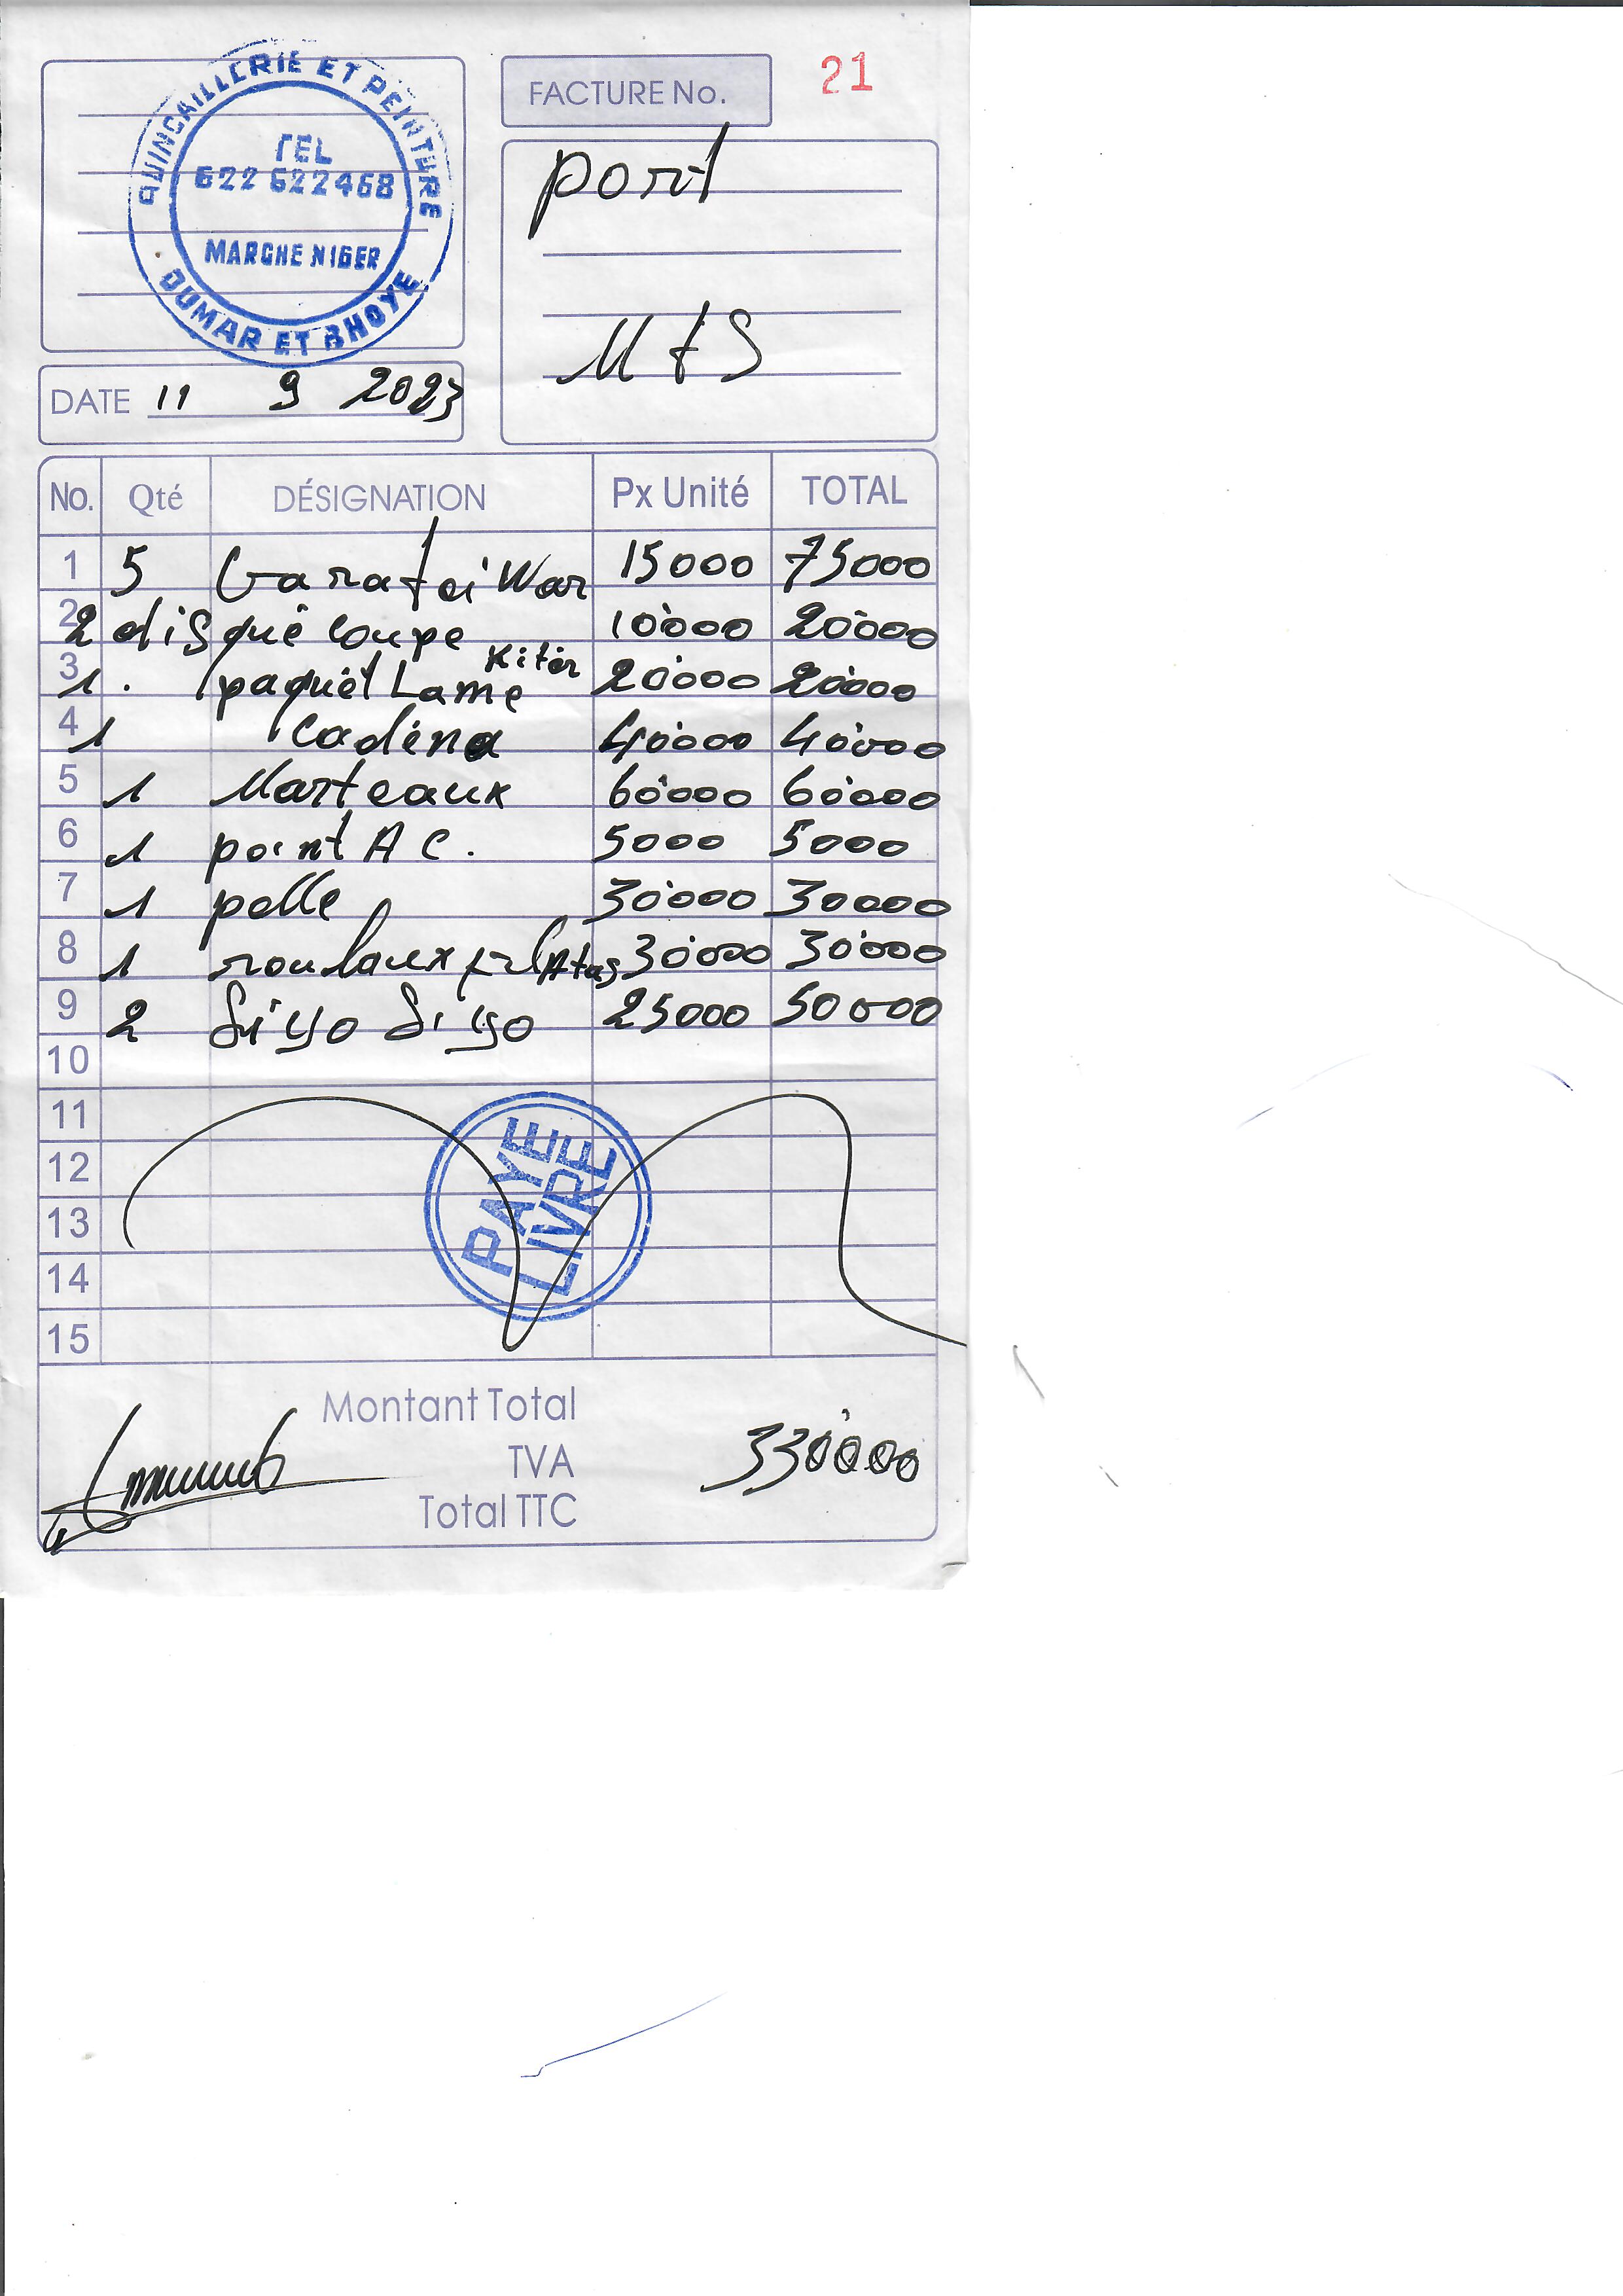 QUINCAILLERIE ET PEINTURE
TEL
622 622468
MARCHE NIGER
OUMAR ET BHOYE
FACTURE No. 21
port
MtS
DATE 11 9 2023
No. Qté DÉSIGNATION Px Unité TOTAL
1 5 15000 75000
2 2 disque coupe 10000 20000
3 1 paquet Lame 20000 20000
4 1 Cadéna 40000 40000
5 1 Marteaux 60000 60000
6 1 point A C. 5000 5000
7 1 pelle 30000 30000
8 1 roulaux 30000 30000
9 2 Siyo Siyo 25000 50000
10
11
12
13
14
15
PAYE
LIVRE
Montant Total
TVA 330000
Total TTC